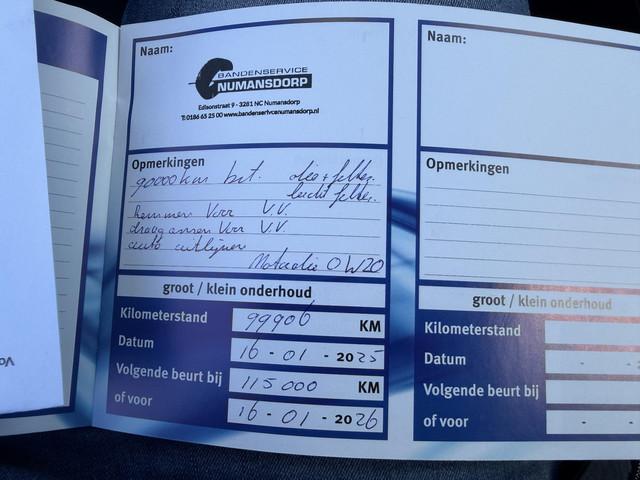 Naam:
BANDENSERVICE
NUMANSDORP
Edisonstraat 9 - 3281 NC Numansdorp
T: 0186 65 25 00 www.bandenservicenumansdorp.nl
Opmerkingen
90000 km brt. olie + filter.
lucht filter.
remmen Voor V.V.
draagarmen Voor V.V.
auto uitlijnen
Motorolie 0W20
groot / klein onderhoud
Kilometerstand 99906 KM
Datum 16 - 01 - 2025
Volgende beurt bij 115000 KM
of voor 16 - 01 - 2026
Naam:
Opmerkingen
groot / klein onderhoud
Kilometerstand
Datum - -
Volgende beurt bij
of voor - -